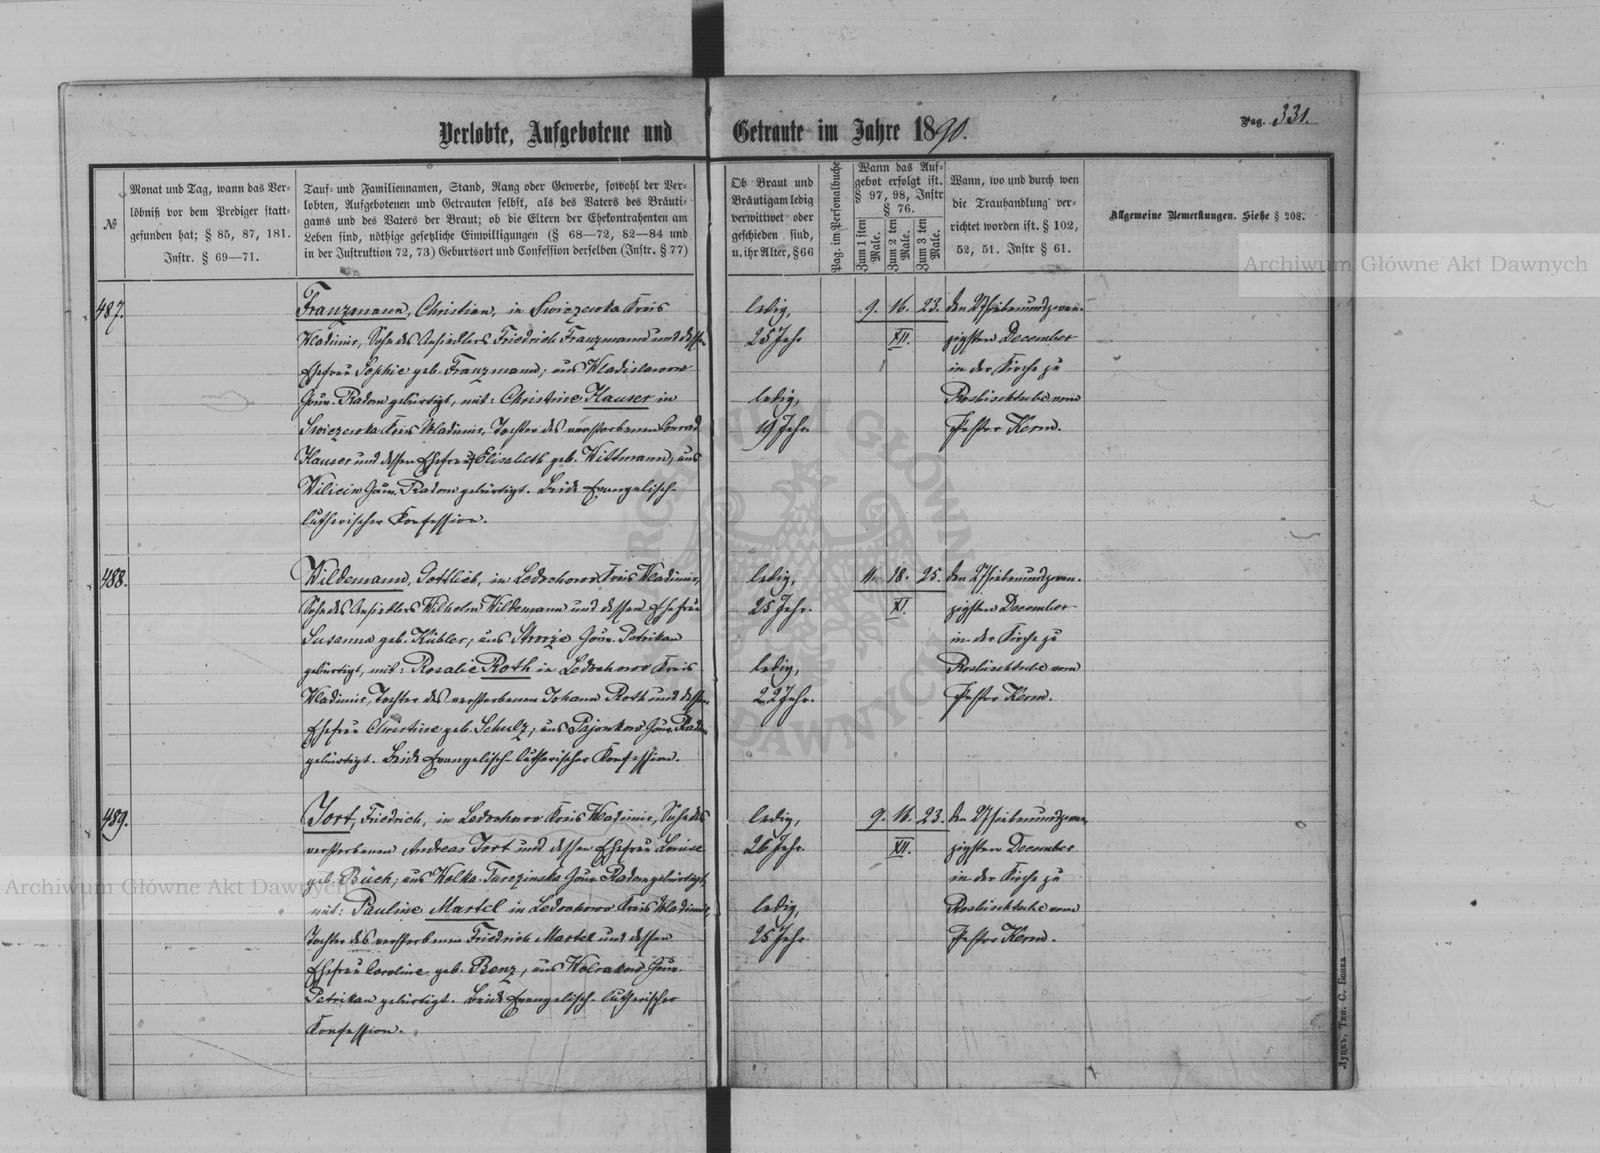 Verlobte, Aufgebotene und Getraute im Jahre 1890.
Pag. 331.
№
Monat und Tag, wann das Ver-
löbniß vor dem Prediger statt-
gefunden hat; § 85, 87, 181.
Instr. § 69—71.
Tauf- und Familiennamen, Stand, Rang oder Gewerbe, sowohl der Ver-
lobten, Aufgebotenen und Getrauten selbst, als des Vaters des Bräuti-
gams und des Vaters der Braut; ob die Eltern der Ehekontrahenten am
Leben sind, nöthige gesetzliche Einwilligungen (§ 68—72, 82—84 und
in der Instruktion 72, 73) Geburtsort und Confession derselben (Instr. § 77)
Ob Braut und
Bräutigam ledig
verwittwet oder
geschieden sind,
u. ihr Alter, § 66
Pag. im Personalbuche
Wann das Auf-
gebot erfolgt ist.
§ 97, 98, Instr
§ 76.
Zum 1 sten
Male.
Zum 2 ten
Male.
Zum 3 ten
Male.
Wann, wo und durch wen
die Trauhandlung ver-
richtet worden ist. § 102,
52, 51. Instr § 61.
Allgemeine Bemerkungen. Siehe § 208.
Archiwum Główne Akt Dawnych
487.
Franzmann, Christian, in Swiczewka Kreis
Wladimir, Sohn des Ansiedlers Friedrich Franzmann und dessen
Ehefrau Sophie geb. Franzmann; aus Wladislawow
Gouv. Radom gebürtigt, mit: Christine Hauser in
Swiczewka Kreis Wladimir, Tochter des verstorbenen Conrad
Hauser und dessen Ehefrau Elisabeth geb. Wittmann, aus
Wilicin Gouv. Radom gebürtigt. Beide Evangelisch-
lutherischer Konfession.
ledig,
25 Jahr
ledig,
19 Jahr.
9. 16. 23.
XII.
den 27 siebenundzwan-
zigsten December
in der Kirche zu
Roshischtsche vom
Pastor Kerm.
488.
Wildemann, Gottlieb, in Ledochow Kreis Wladimir,
Sohn des Ansiedlers Wilhelm Wildemann und dessen Ehefrau
Susanna geb. Kübler, aus Gouv. Petrikau
gebürtigt, mit: Rosalie Roth in Ledochow Kreis
Wladimir, Tochter des verstorbenen Johann Roth und dessen
Ehefrau Christine geb. Schulz, aus Pajonkow Gouv. Radom
gebürtigt. Beide Evangelisch-lutherischer Konfession.
ledig,
25 Jahr.
ledig,
22 Jahr.
11. 18. 25.
XI.
den 27 siebenundzwan-
zigsten December
in der Kirche zu
Roshischtsche vom
Pastor Kerm.
489.
Jort, Friedrich, in Ledochow Kreis Wladimir, Sohn des
verstorbenen Andreas Jort und dessen Ehefrau Louise
geb. Büch, aus Wolka-Turczinska Gouv. Radom gebürtigt,
mit: Pauline Martel in Ledochow Kreis Wladimir,
Tochter des verstorbenen Friedrich Martel und dessen
Ehefrau Caroline geb. Benz, aus Wolrakow Gouv.
Petrikau gebürtigt. Beide Evangelisch-lutherischer
Konfession.
ledig,
26 Jahr.
ledig,
25 Jahr.
9. 16. 23.
XII.
den 27 siebenundzwan-
zigsten December
in der Kirche zu
Roshischtsche vom
Pastor Kerm.
Archiwum Główne Akt Dawnych
ARCHIWUM GŁÓWNE AKT DAWNYCH
Луцкъ, Тип. С. Бонка